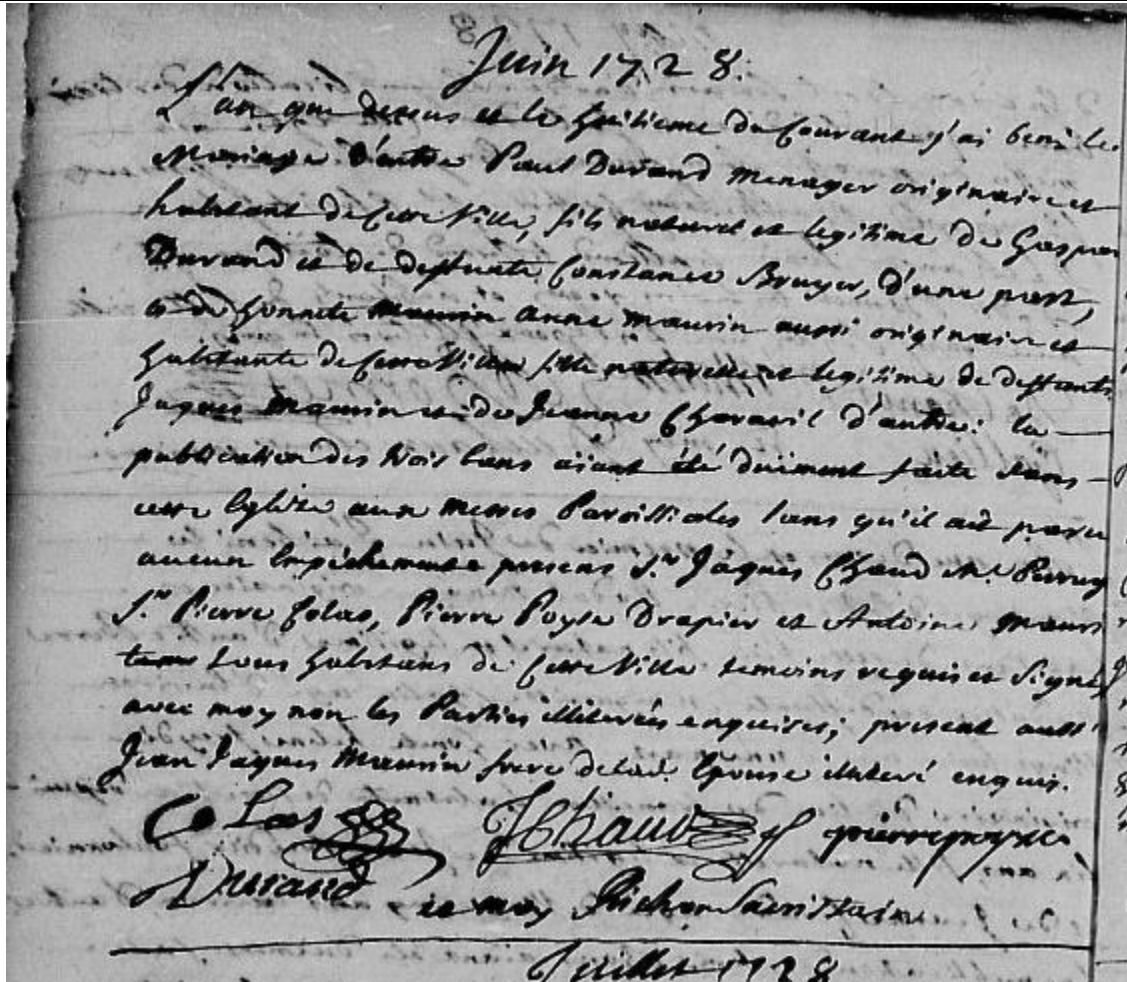 Juin 1728.
L'an que dessus et le huitieme du Courant j'ai beni le
Mariage d'entre Paul Durand menager originaire et
habitant de cette Ville, fils naturel et legitime de Gaspar
Durand et de deffunte Constance Bruyer, d'une part,
et de honnete Anne maurin aussi originaire et
habitante de cette Ville fille naturelle et legitime de deffants
Jaques Maurin et de Jeanne Charavil d'autre: la
publication des trois bans aiant été duiment faite dans
cette Eglise aux messes Paroissiales sans qu'il ait paru
aucun Empéchement presens Sr. Jaques Chaud Me. Perruq
Sr. Pierre Colas, Pierre Poyse Drapier et Antoine Maur
tous habitans de cette Ville temoins requis et signéz
avec moy non les Parties illiterées enquises; present aussi
Jean Jaques Maurin frere de lad. Epouse illiteré enquis.
Colas JChaud pierre poyse
Durand et moy Richer Sacristain
Juillet 1728